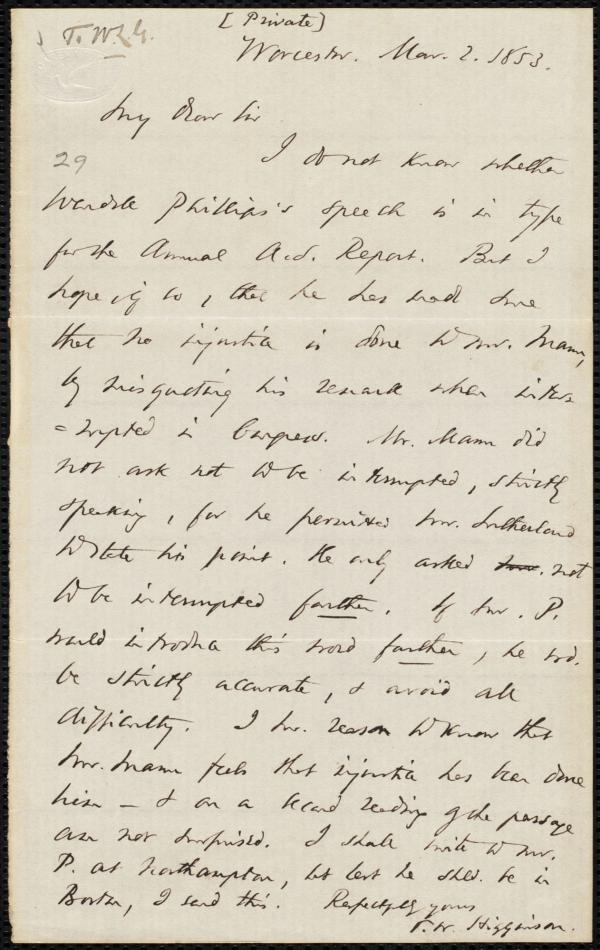 [Private]
T. W. H.
Worcester. Mar. 2. 1853.
My dear Sir
29
I do not know whether
Wendell Phillips's speech is in type
for the Annual A.S. Report. But I
hope, if so, that he has made sure
that no injustice is done to Mr. Mann,
by misquoting his remark when inter
=rupted in Congress. Mr. Mann did
not ask not to be interrupted, strictly
speaking, for he permitted Mr. Sutherland
to state his point. He only asked not
to be interrupted farther. If Mr. P.
would introduce this word farther, he wd.
be strictly accurate, & avoid all
difficulty. I hv. reason to know that
Mr. Mann feels that injustice has been done
him — & on a second reading of the passage
am not surprised. I shall write to Mr.
P. at Northampton, but lest he shld. be in
Boston, I send this. Respectfully yours
T. W. Higginson.